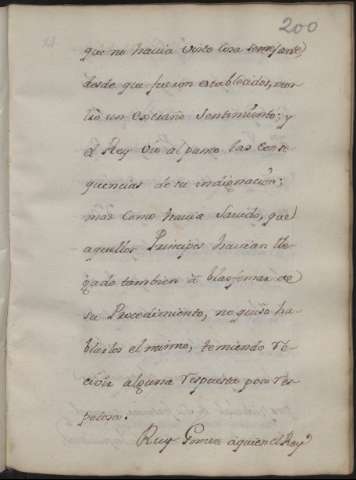 200
que no hauia visto cosa semejante,
desde que fueron establecidos, mos-
un extraño sentimiento; y
el Rey vio al punto las conse-
quencias de su indignacion;
mas como hauia sauido, que
aquellos Principes hauian lle-
gado tambien a blasfemar de
su Procedimiento, no quiso ha-
blarlos el mismo, temiendo re-
civir alguna respuesta poco res-
petosa.
Ruy Gomez a quien el Rey